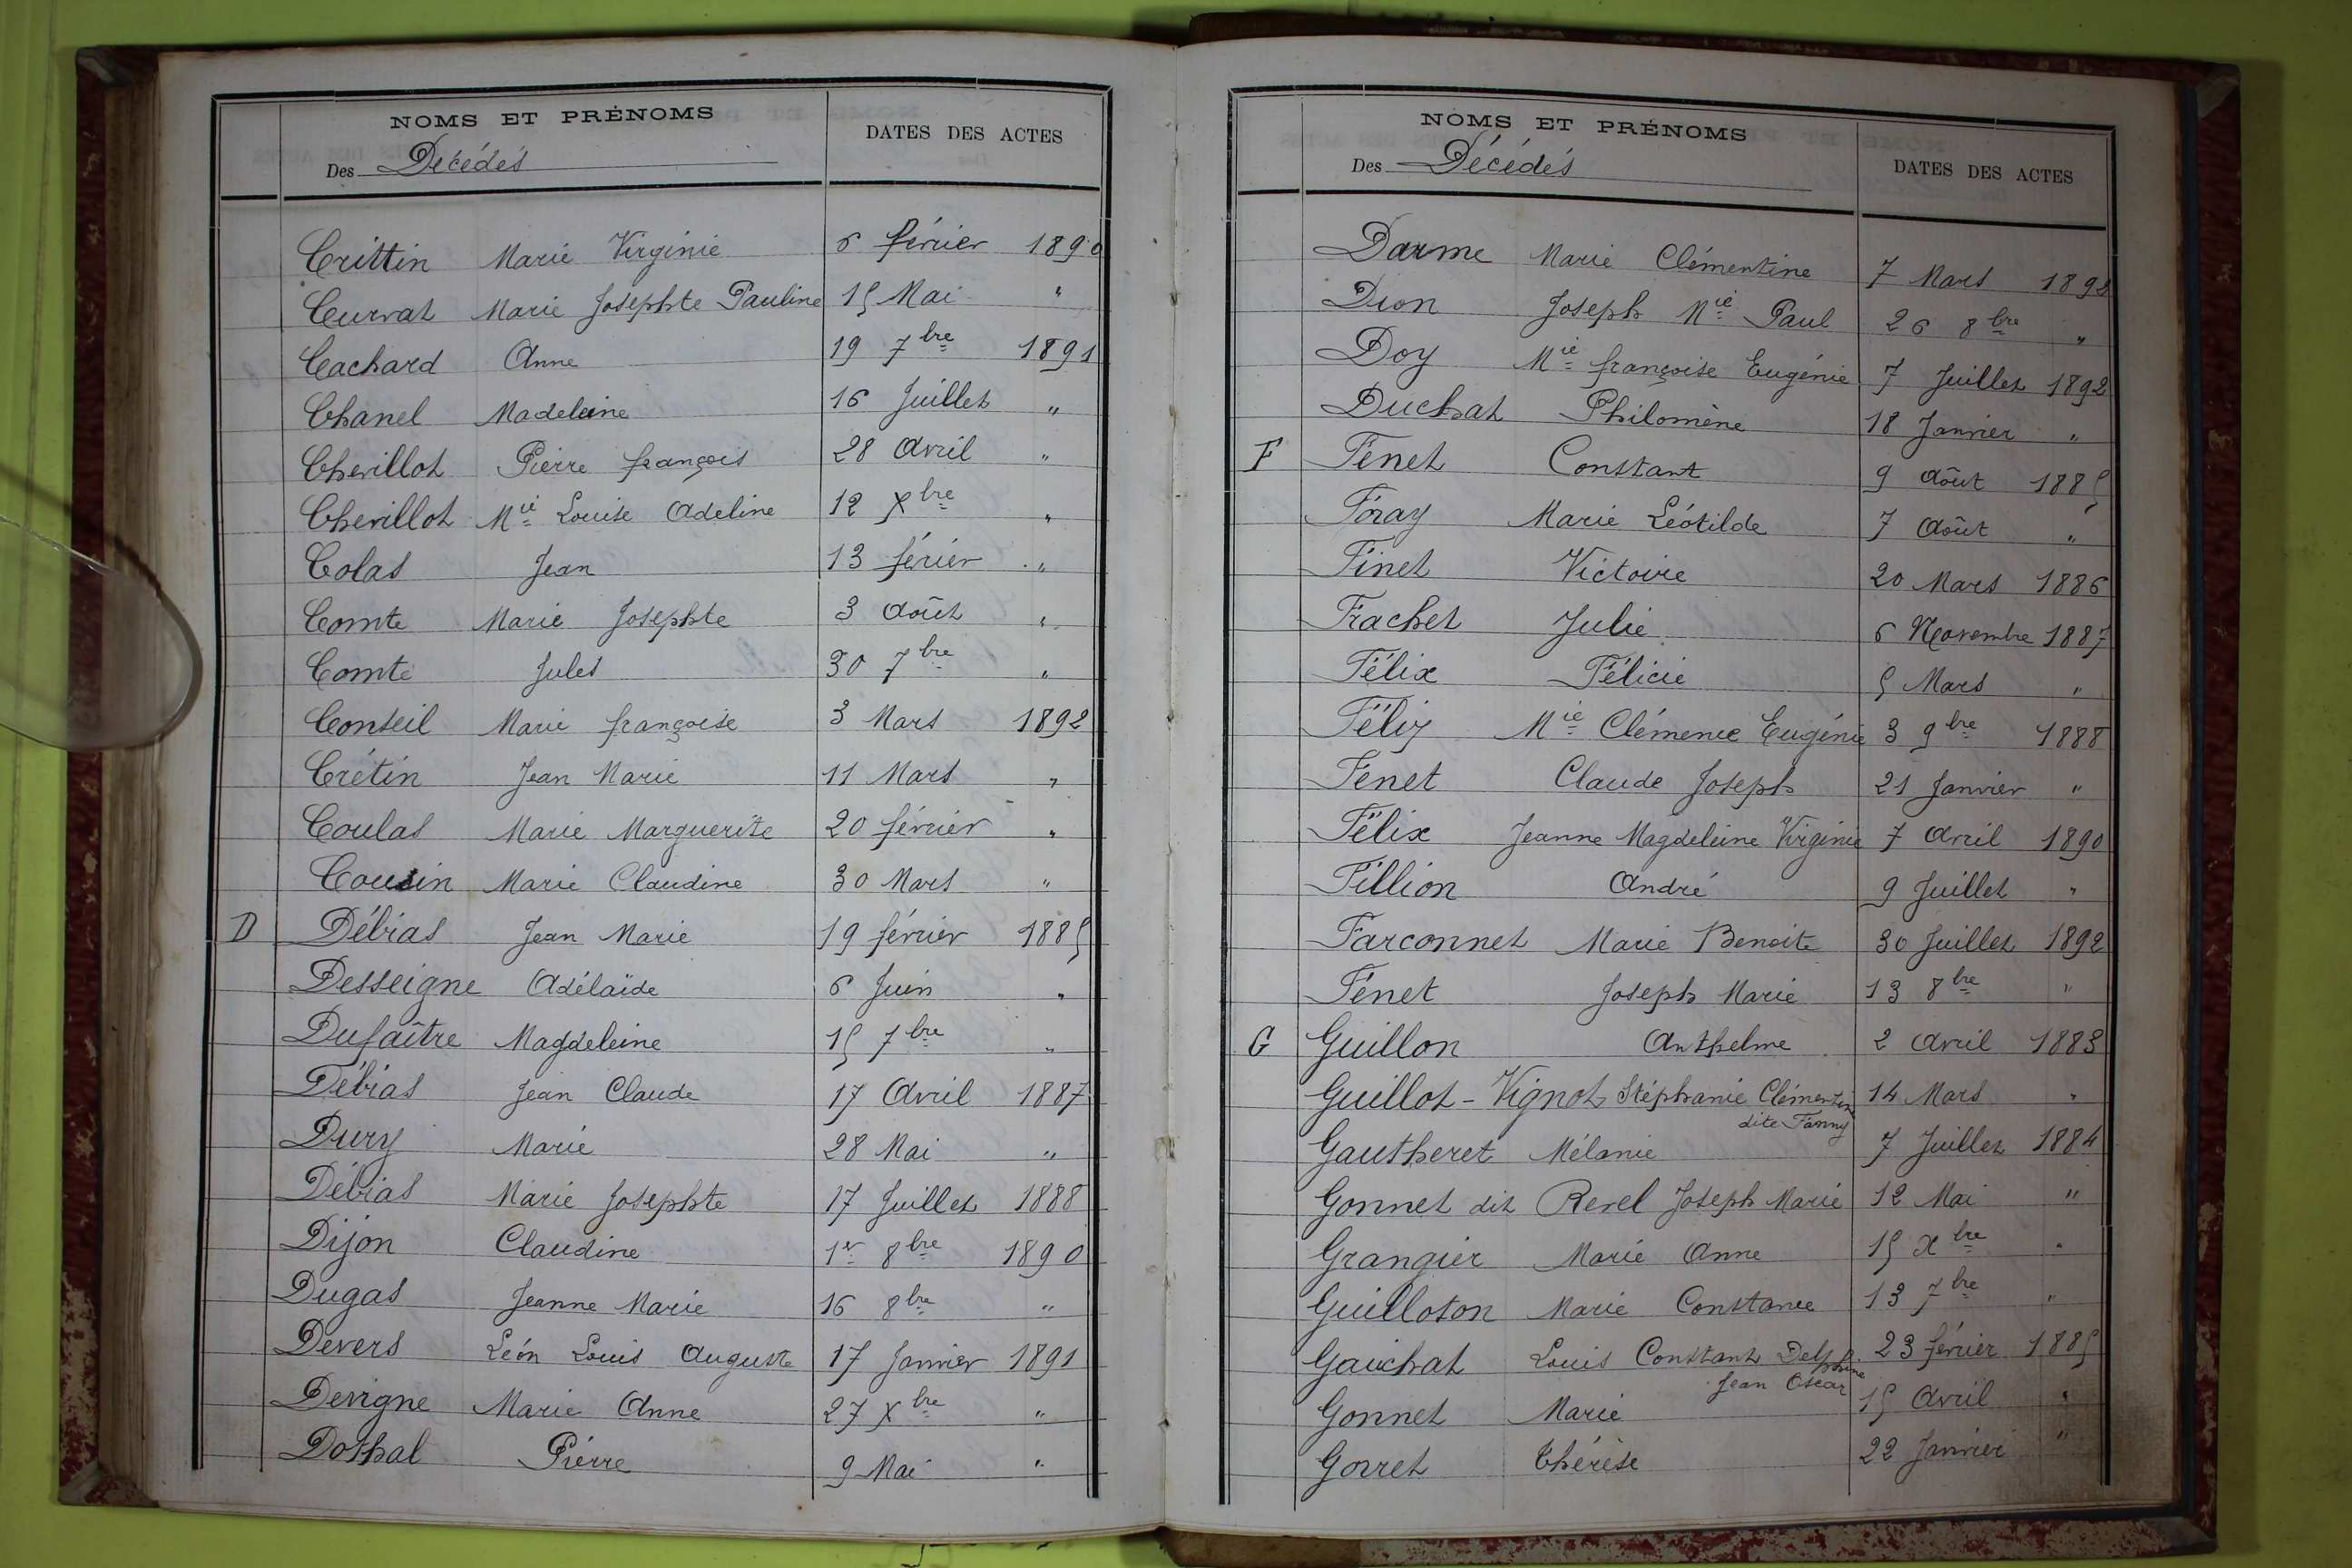 NOMS ET PRÉNOMS DATES DES ACTES
Des Décédés
Crittin Marie Virginie 6 février 1890
Curvat Marie Josephte Pauline 15 Mai "
Cachard Anne 19 7bre 1891
Chanel Madeleine 16 Juillet "
Chevillot Pierre françois 28 Avril "
Chevillot Mie Louise Adeline 12 Xbre "
Colas Jean 13 février "
Comte Marie Josephte 3 Août "
Comte Jules 30 7bre "
Conseil Marie françoise 3 Mars 1892
Crétin Jean Marie 11 Mars "
Coulas Marie Marguerite 20 février "
Cousin Marie Claudine 30 Mars "
D Débias Jean Marie 19 février 1885
Desseigne Adélaïde 6 Juin "
Dufaître Magdeleine 15 7bre "
Débias Jean Claude 17 Avril 1887
Dury Marie 28 Mai "
Débias Marie Josephte 17 Juillet 1888
Dijon Claudine 1er 8bre 1890
Dugas Jeanne Marie 16 8bre "
Devers Léon Louis Auguste 17 Janvier 1891
Devigne Marie Anne 27 Xbre "
Dothal Pierre 9 Mai "
NOMS ET PRÉNOMS DATES DES ACTES
Des Décédés
Darme Marie Clémentine 7 Mars 1892
Dion Joseph Mie Paul 26 8bre "
Doy Mie françoise Eugénie 7 Juillet 1892
Duchat Philomène 18 Janvier "
F Fenet Constant 9 Août 1885
Foray Marie Léotilde 7 Août "
Finet Victoire 20 Mars 1886
Frachet Julie 6 Novembre 1887
Félix Félicie 5 Mars "
Félix Mie Clémence Eugénie 3 9bre 1888
Fenet Claude Joseph 21 Janvier "
Félix Jeanne Magdeleine Virginie 7 Avril 1890
Fillion André 9 Juillet "
Farconnet Marie Benoite 30 Juillet 1892
Fénet Joseph Marie 13 8bre "
G Guillon Anthelme 2 Avril 1883
Guillot-Vignot Stéphanie Clémentine 14 Mars "
dite Fanny
Gautheret Mélanie 7 Juillet 1884
Gonnet dit Revel Joseph Marie 12 Mai "
Grangier Marie Anne 15 Xbre "
Guilloton Marie Constance 13 7bre "
Gauchat Louis Constant Delphine 23 février 1885
Jean Oscar
Gonnet Marie 15 Avril "
Gorret Thérèse 22 Janvier "